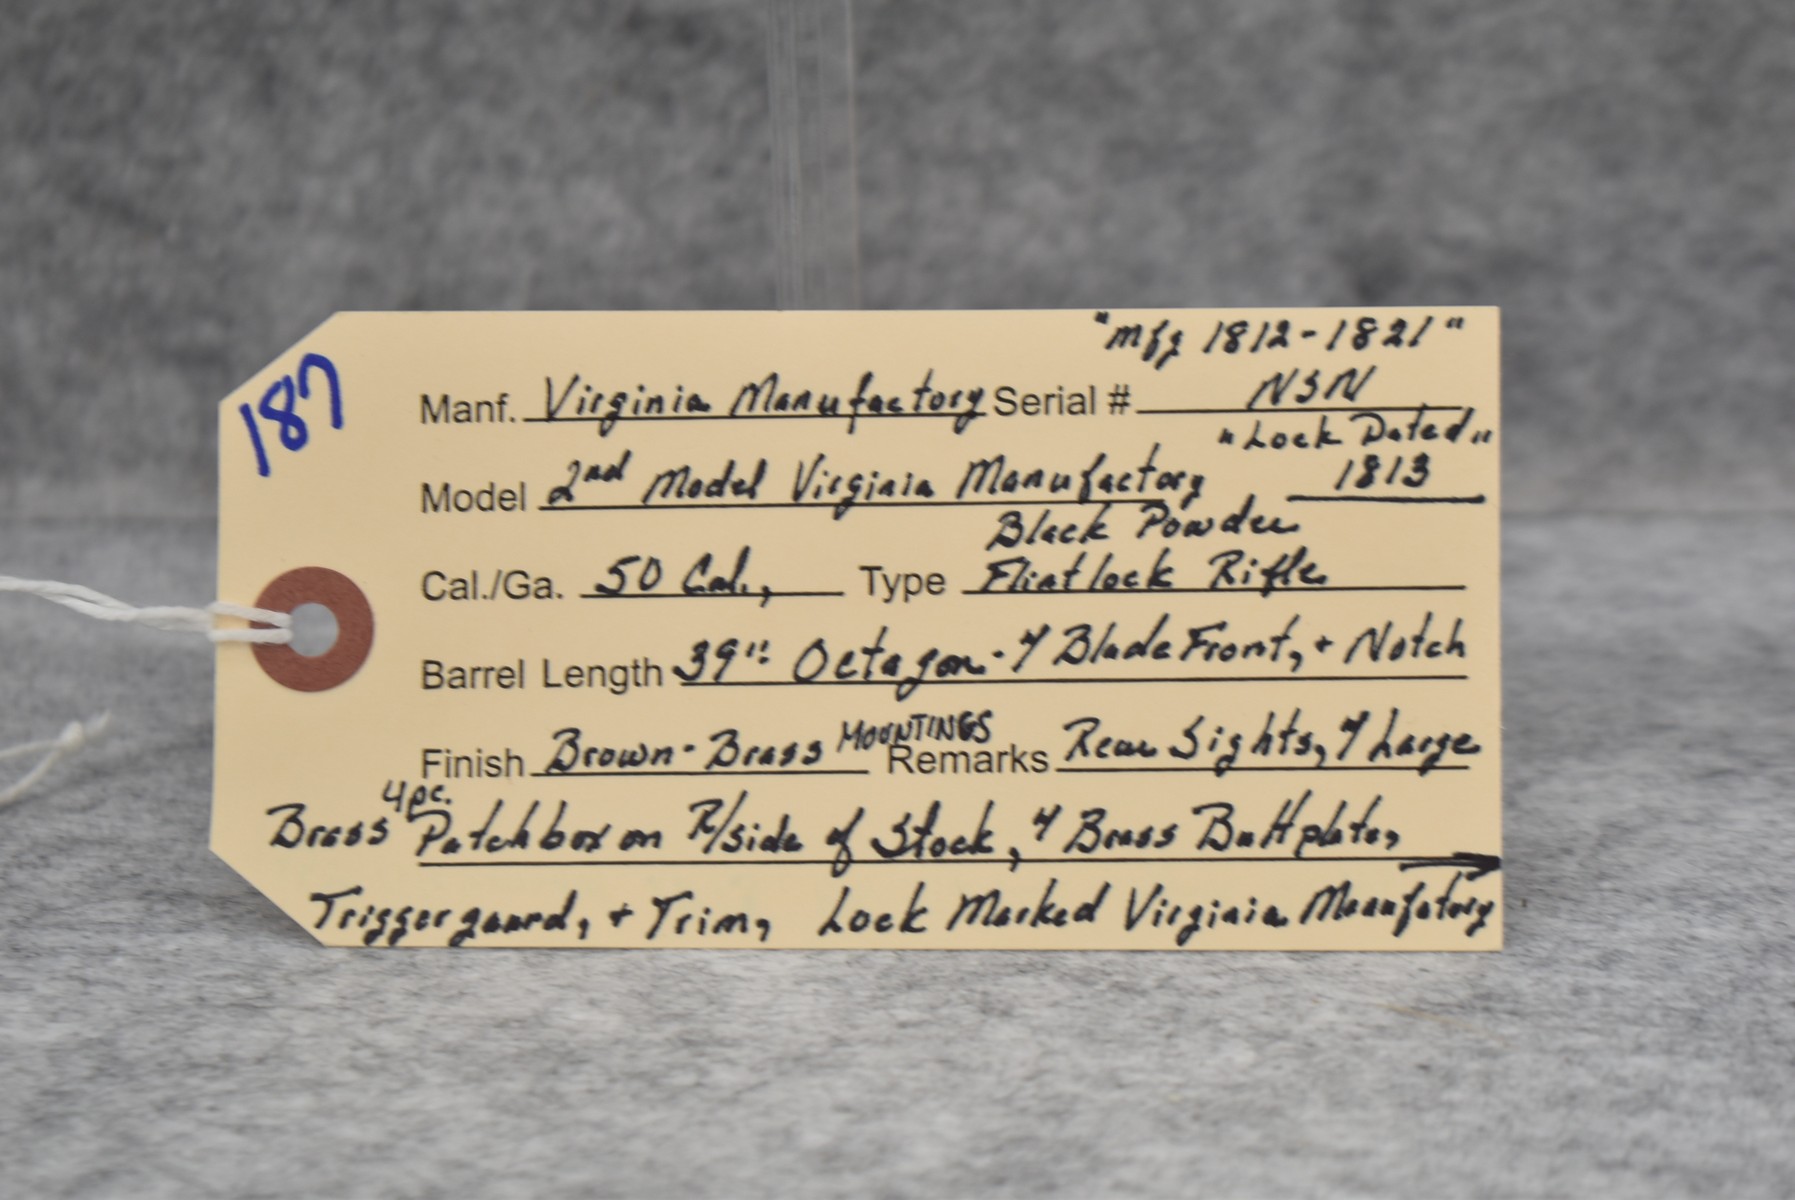 187
"mfg 1812-1821"
Manf. Virginia Manufactory Serial # NSN
"Lock Dated"
Model 2nd Model Virginia Manufactory 1813
Black Powder
Cal./Ga. 50 Cal., Type Flintlock Rifle
Barrel Length 39" Octagon - y Blade Front, + Notch
Finish Brown - Brass MOUNTINGS Remarks Rear Sights, y Large
Brass 4pc. Patchbox on R/side of Stock, y Brass Buttplate,
Triggerguard, + Trim, Lock Marked Virginia Manufatory